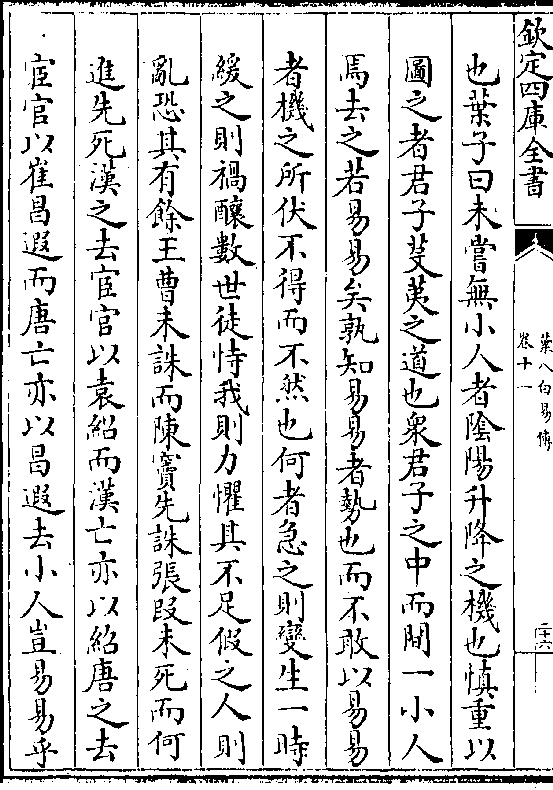 欽定四庫全書
葉八白易傳
卷十一
二十六
也葉子曰未嘗無小人者陰陽升降之機也慎重以
圖之者君子芟荑之道也衆君子之中而間一小人
焉去之若易易矣孰知易易者勢也而不敢以易易
者機之所伏不得而不然也何者急之則變生一時
緩之則禍釀數世徒恃我則力懼其不足假之人則
亂恐其有餘王曹未誅而陳竇先誅張段未死而何
進先死漢之去宦官以袁紹而漢亡亦以紹唐之去
宦官以崔昌遐而唐亡亦以昌遐去小人豈易易乎